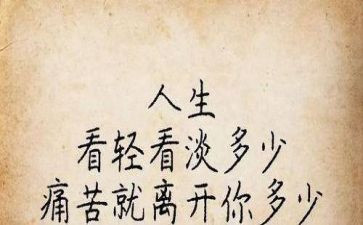 人生
看轻看淡多少
痛苦就离开你多少